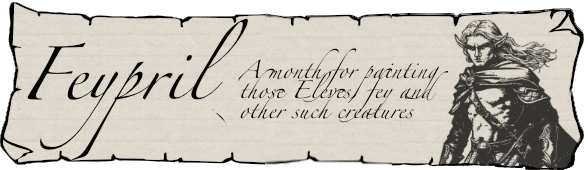 Feypril
A month for painting
those Eleves, fey and
other such creatures